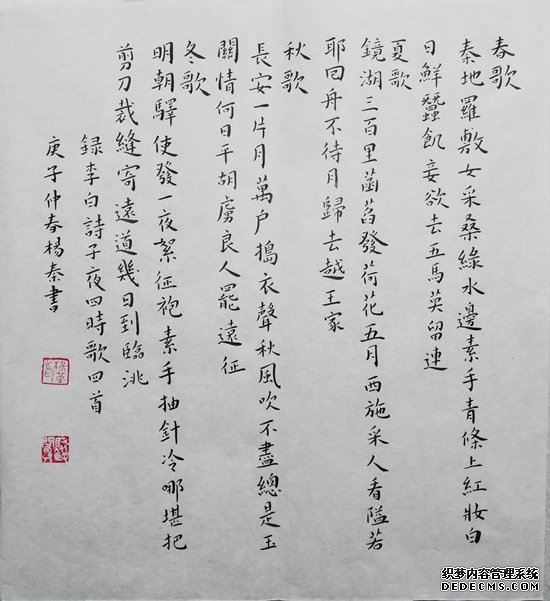 春歌
秦地羅敷女采桑綠水邊素手青條上紅妝白
日鮮蠶飢妾欲去五馬英留連
夏歌
鏡湖三百里菡萏發荷花五月西施采人看隘若
耶回舟不待月歸去越王家
秋歌
長安一片月萬户搗衣聲秋風吹不盡總是玉
關情何日平胡虜良人罷遠征
冬歌
明朝驛使發一夜絮征袍素手抽針冷哪堪把
剪刀裁縫寄遠道幾日到臨洮
録李白詩子夜四時歌四首
庚子仲春楊秦書
织梦内容管理系统
DEDECMS.COM